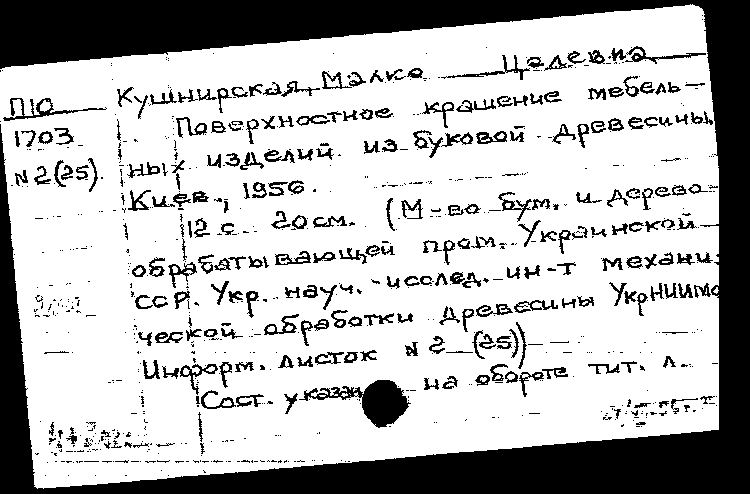 П10 Кушнирская, Малка Цалевна
1703 Поверхностное крашение мебель-
N 2(25). ных изделий из буковой древесины.
Киев., 1956.
12 с. 20см. (М-во бум. и дерево-
обрабатывающей пром. Украинской
ССР. Укр. науч.-исслед. ин-т механи-
ческой обработки древесины УкрНИИМО
Информ. листок N 2 (25))
Сост. указан на обороте тит. л.